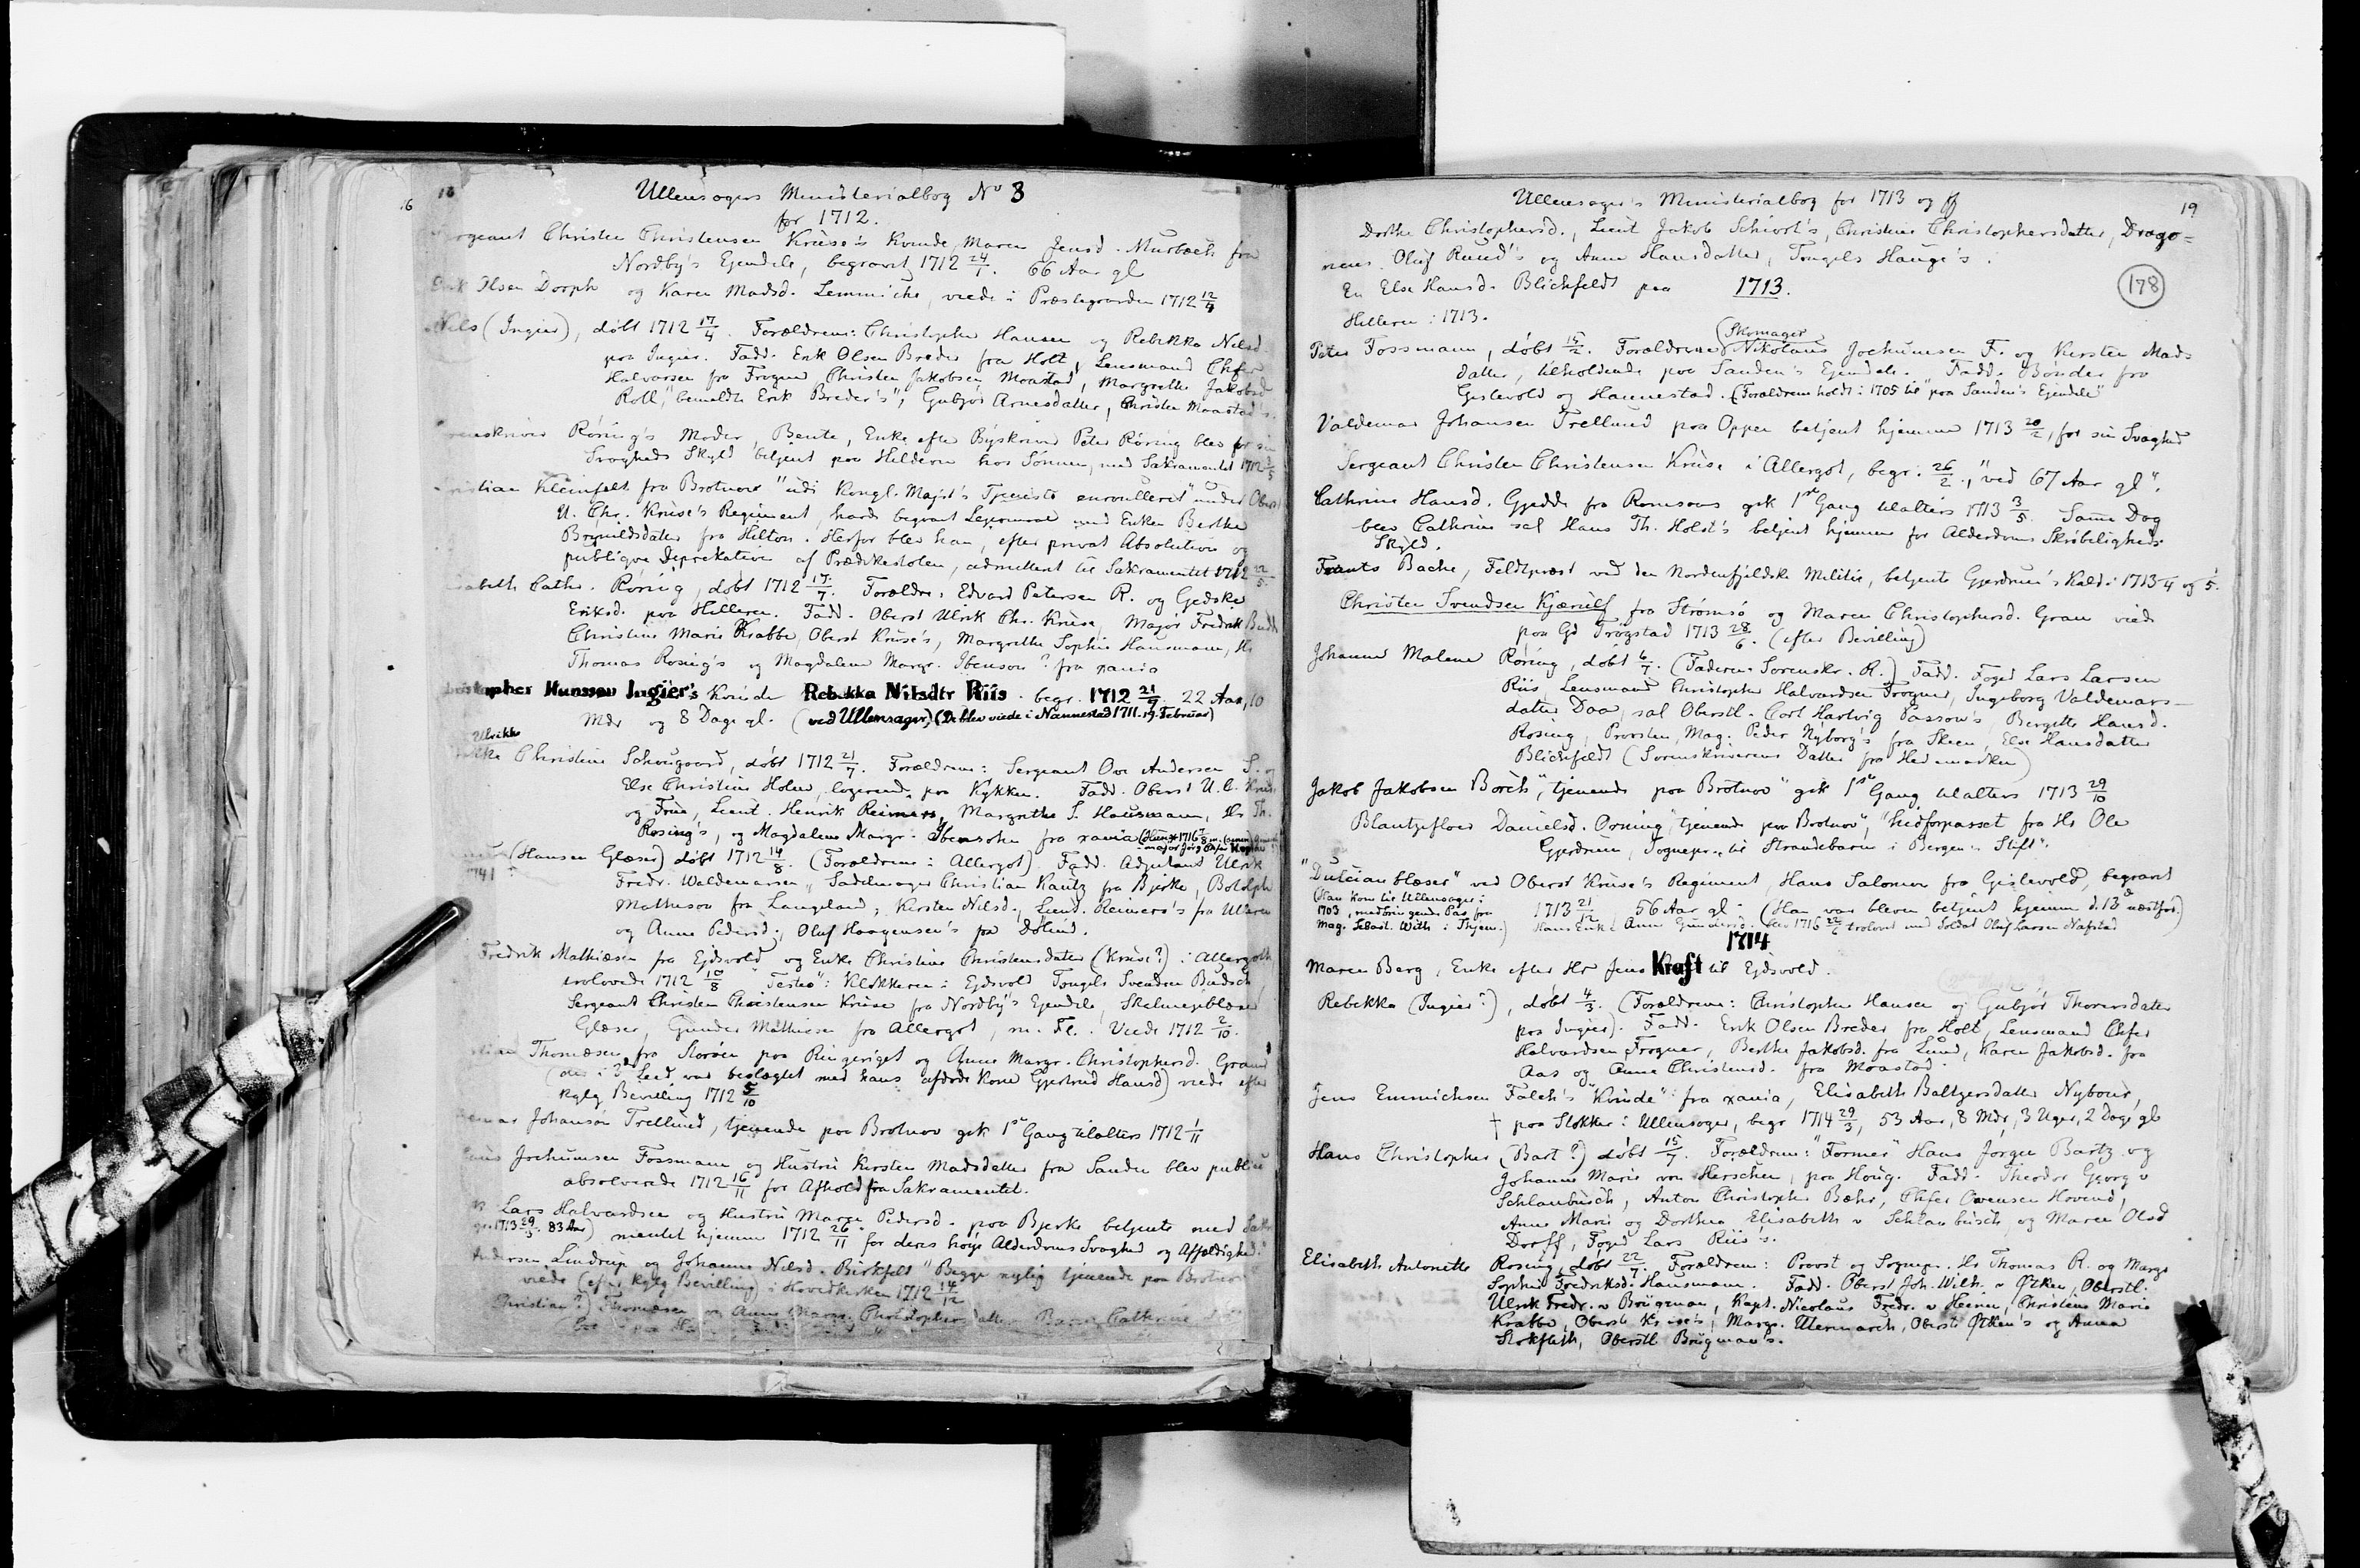 16
18
Ullensagers Ministerialbog No 3
for 1712.
Christen Christensen Krüse's Kvinde, Maren Jensd. Murbæch fra
Nordby's Ejendele, begravet 1712 24/1. 66 Aar gl
Erik Olsen Dorph og Karen Madsd. Lemmiche, viede i Præstegaarden 1712 12/4
Nils (Ingier), døbt 1712 17/4. Forældrene: Christopher Hansen og Rebekka Nilsd.
paa Ingier. Fadd. Erik Olsen Breder fra Holt, Lensmand Chfer
Halvorsen fra Frogner Christen Jakobsen Moastad, Margrethe Jakobsd
Roll, "bemeldte Erik Breder's", Gubjør Arnesdatter, Christen Moastad's.
Røring's Moder, Bente, Enke efter Byskriver Peter Røring blev for sin
Svagheds Skyld betjent paa Hilderen hos Sønnen, med Sakramentet 1712
Kleinfelt fra Brotnov "udi Kongl. Majst's Tjeneste enroulleret" under Oberst
U. Chr. Krüse's Regiment, havde begaaet Lejermaal med Enken Berthe
Brynildsdatter fra Hilton. Herfor blev han, efter privat Absolution og
publiqve Deprekation af Prædikestolen, admitteret til Sakramentet 1712 22/5.
Cathr. Røring, døbt 1712 17/7. Forældre: Edvard Petersen R. og Gedske
Eriksd. paa Hilleren. Fadd. Oberst Ulrik Chr. Krüse, Major Fredrik Budde
Christine Marie Krabbe, Oberst Krüse's, Margrethe Sophie Hausmann, Hr
Thomas Rosing's og Magdalene Margr. Ibenson? fra xania
Christopher Hanssøn Ingier's Kvinde Rebekka Nilsdtr Riis. begr. 1712 21/7. 22 Aar, 10
Mdr og 8 Dage gl. (ved Ullensager) (De blev viede i Nannestad 1711. 19. Februar)
Ulrikke
Christine Schougaard, døbt 1712 21/7. Forældrene: Sergeant Ove Andersen S. og
Else Christine Holm, logerende paa Kykken. Fadd. Oberst U.C. Krüse
og Frue, Lieut. Henrik Reimers, Margrethe S. Hausmann, Hr Th.
Rosing's, og Magdalene Margr. Ibensohn fra xania
(Hansen Glæser) døbt 1712 14/8. (Forældrene i Allergot) Fadd. Adjutant Ulrik
Fredr. Waldemarsen, Sadelmager Christian Kautz fra Bjerke, Botolph
Mathison fra Langeland, Kirsten Nilsd., Lieut. Reimers's fra Ulleren
og Anne Pedersd., Oluf Haagensen's fra Døhlind.
Fredrik Mathiæsen fra Ejdsvold og Enke Christine Christensdatter (Krüse?) i Allergoth
trolovede 1712 18/8 "Testes": Klokkeren i Ejdsvold Tongels Svendsen Budsch,
Sergeant Christen Christensen Krüse fra Nordby's Ejendele, Skalmejeblæser
Glæser, Gunder Mathiesen fra Allergot, m. Fl. Viede 1712 2/10.
Thomæsen fra Storøen paa Ringeriget og Anne Margr. Christophersd. Gram
(der i 3die Led var beslægtet med hans afdøde Kone Gjertrud Hansd) viede efter
kglg Bevilling 1712 5/10
Johansøn Trellund, tjenende paa Brotnov gik 1ste Gang tilalters 1712 1/11
Jochumsen Fossmann og Hustru Kirsten Madsdatter fra Sanden blev publice
absolverede 1712 16/11 for Afhold fra Sakramentet.
Lars Halvardsen og Hustru Maren Pedersd. paa Bjerke betjente med Sakra
1713 29/5. 83 Aar) mentet hjemme 1712 26/11 for deres høje Alderdoms Svaghed og Affældighed.
Andersen Lindrup og Johanne Nilsd. Birkfelt "Begge nylig tjenende paa Brotnov"
viede (efter kglg Bevilling) i Hovedkirken 1712 14/12
Christian?) Thomæsen og Anne Margr. Christophersdatter Barn Cathrine
Ullensager's Ministerialbog for 1713 og ff
19
Dorthe Christophersd., Lieut Jakob Schiort's, Christine Christophersdatter, Drago=
nens Oluf Ruud's og Anne Hansdatter, Tongels Hauge's.
En Else Hansd. Blichfeldt paa
Hilleren i 1713.
1713.
178
(Skomager
Peter Fossmann, døbt 15/2. Forældrene Nikolaus Jochumsen F. og Kirsten Mads
datter, tilholdende paa Sanden's Ejendele. Fadd. Bønder fra
Gislevold og Hannestad. (Forældrene holdt i 1705 til "paa Sanden's Ejendele"
Valdemar Johansen Trellund paa Oppen betjent hjemme 1713 20/2, for sin Svaghed
Sergeant Christen Christensen Krüse i Allergot, begr. 26/2., "ved 67 Aar gl".
Cathrine Hansd. Gjedde fra Romsaas gik 1ste Gang tilalters 1713 3/5. Samme Dag
blev Cathrine sal Hans Th. Holst's betjent hjemme for Alderdoms Skrøbeligheds
Skyld.
Frants Bache, Feldtpræst ved den Nordenfjeldske Militie, betjente Gjerdrum's Kald i 1713 1/4 og 1/5.
Christen Svendsen Kjærulf fra Strømsø og Maren Christophersd. Gram viede
paa Gd Trøgstad 1713 28/6. (efter Bevilling)
Johanne Malene Røring, døbt 6/7. (Faderen: Sorenskr. R.) Fadd. Foged Lars Larsen
Riis, Lensmand Christopher Halvardsen Frogner, Ingeborg Valdemars-
datter Daa, sal Oberstl. Carl Hartvig Passow's, Bergitte Hansd.
Rosing, Provsten, Mag. Peder Nyborg's fra Skeen, Else Hansdatter
Blichfeldt (Sorenskriverens Datter fra Hedemarken)
Jakob Jakobsen Borch, "tjenende paa Brotnov" gik 1ste Gang tilalters 1713 29/10
Blantzeflor Danielsd. Orning, "tjenende paa Brotnov", "hidforpasset fra Hr Ole
Gjerdrum, Sognepr. til Strandebarm i Bergens Stift".
"Dulcianblæser" ved Oberst Krüse's Regiment, Hans Salomon fra Gislevold, begravet
(Han kom til Ullensager i
1703, medbringende Pas fra
Mag. Sebast. With i Thjem.)
1713 21/12, 56 Aar gl. (Han var bleven betjent hjemme d. 13de næstfor.)
Hans Enke, Anne Gundersd. blev 1716 22/6 trolovet med Soldat Oluf Larsen Nafstad
1714
Maren Berg, Enke efter Hr Jens Kraft til Ejdsvold.
Rebekka (Ingier?), døbt 4/3. (Forældrene: Christopher Hansen og Gubjør Thoresdatter
paa Ingier). Fadd. Erik Olsen Breder fra Holt, Lensmand Chfer
Halvardsen Frogner, Berthe Jakobsd. fra Lund, Karen Jakobsd. fra
Aas og Anne Christensd. fra Moastad.
Jens Emmichsen Falch's "Kvinde" fra xania, Elisabeth Baltzersdatter Nybour,
† paa Slokker i Ullensager, begr 1714 29/3, 53 Aar, 8 Mdr, 3 Uger, 2 Dage gl
Hans Christopher (Bart?) døbt 15/7. Forældrene: "Former" Hans Jørgen Bartz og
Johanne Marie von Herschen, paa Houg. Fadd. Theodor Georg v
Schlanbusch, Anton Christopher Bæhr, Chfer Ovensen Hovind,
Anne Marie og Dorthea Elisabeth v Schlanbusch og Maren Olsd
Dorff, Foged Lars Riis's.
Elisabeth Antonette Rosing, døbt 22/7. Forældrene: Provst og Sognepr. Hr Thomas R. og Margr
Sophie Fredriksd. Hausmann. Fadd. Oberst Joh. Wilh. v Øtken, Oberstl.
Ulrik Fredr. v Brügman, Kapt. Nicolaus Fredr. v Heinen, Christine Marie
Krabbe, Oberst Krüse's, Margr. Utermarch, Oberst Øtken's og Anna
Stokfleth, Oberstl. Brügman's.